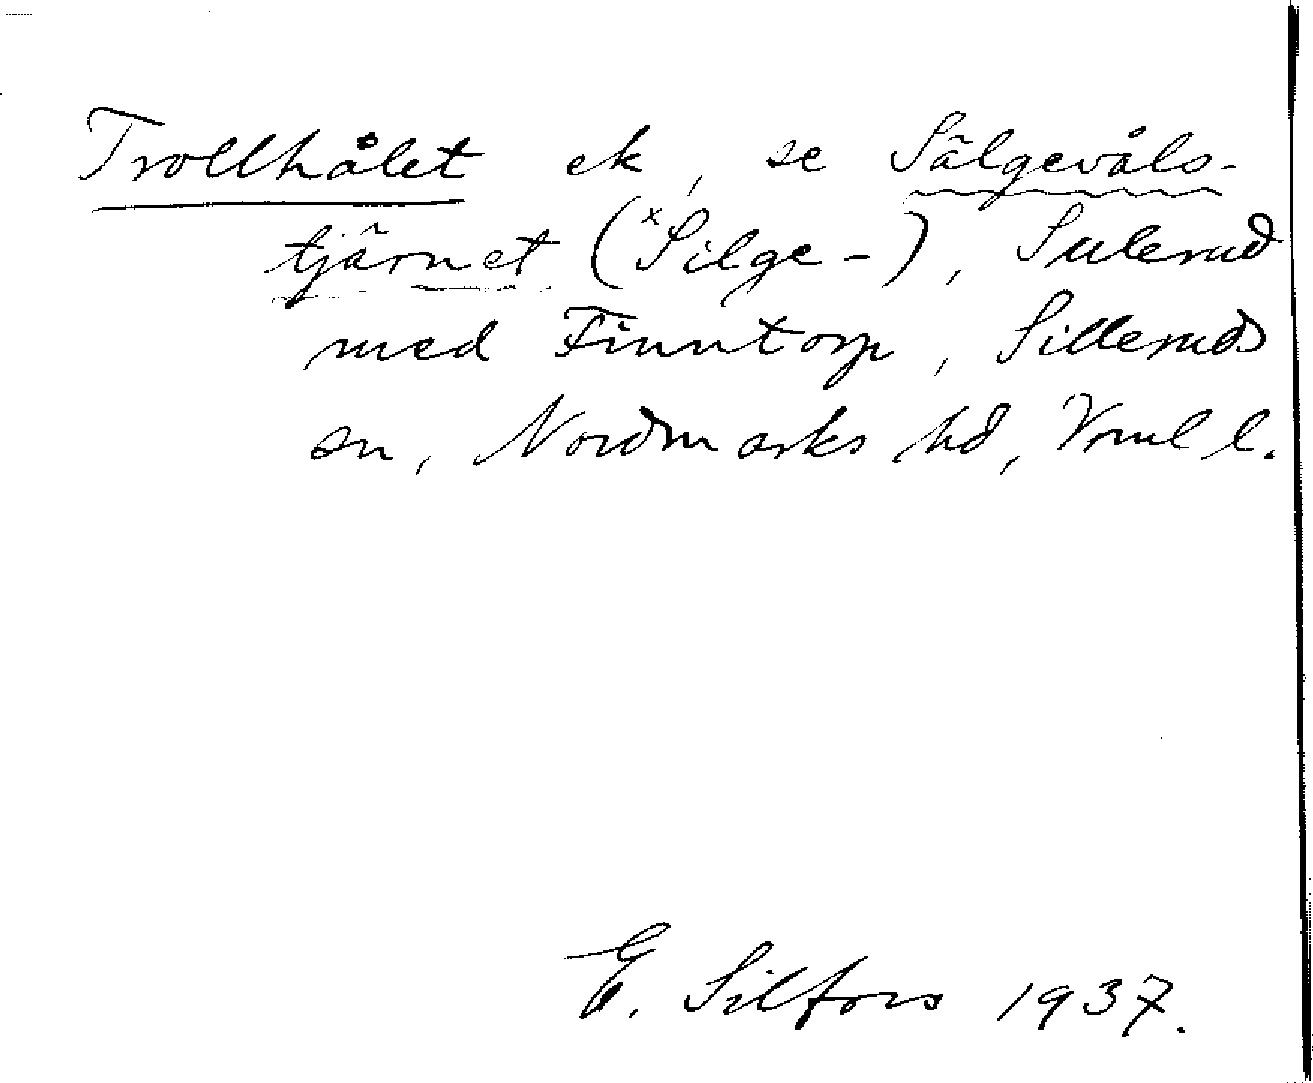 Trollhålet ek, se Sälgevåls-
tjärnet (ˣSilge-), Sulerud
med Finntorp, Silleruds
sn, Nordmarks hd, Vrml l.
E. Silfors 1937.